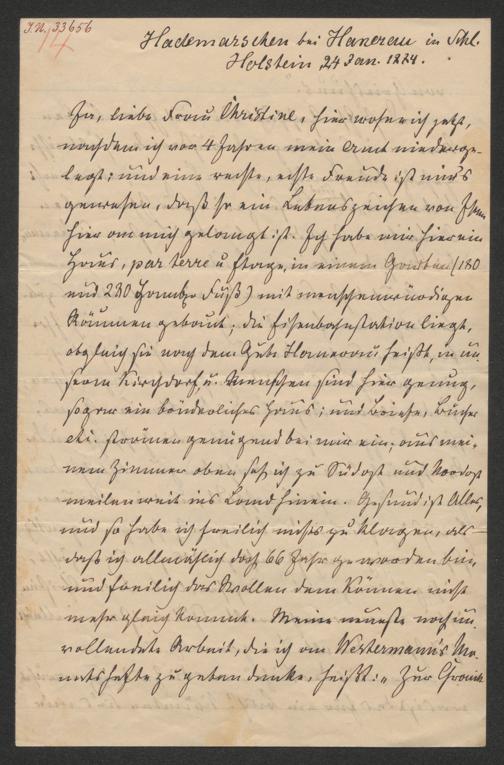 I.N. 33656
14
Hademarschen bei Hanerau in Schl.
Holstein, 24 Jan. 1884.
Ja, liebe Frau Christine, hier wohne ich jetzt,
nachdem ich vor 4 Jahren mein Amt niederge-
legt; und eine rechte, echte Freude ist mir's
gewesen, daß so ein Lebenszeichen von Ihnen
hier an mich gelangt ist. Ich habe mir hier ein
Haus, par terre u. Etage, in einem Garten (180
und 230 Fuß) mit menschenwürdigen
Räumen gebaut; die Eisenbahnstation liegt,
obgleich sie nach dem Gute Hanerau heißt, in un-
serm Kirchdorf, u. Menschen sind hier genug,
sogar ein brüderliches Haus; und Briefe, Bücher
etc. strömen genügend bei mir ein; aus mei-
nem Zimmer oben seh ich zu Südost und Nordost
meilenweit ins Land hinein. Gesund ist Alles,
und so habe ich freilich nichts zu klagen, als
daß ich allmählich doch 66 Jahr geworden bin,
und freilich das Wollen dem Können nicht
mehr gleich kommt. Meine neueste noch un-
vollendete Arbeit, die ich an Westermann's Mo-
natshefte zu geben denke, heißt: „Zur Chronik